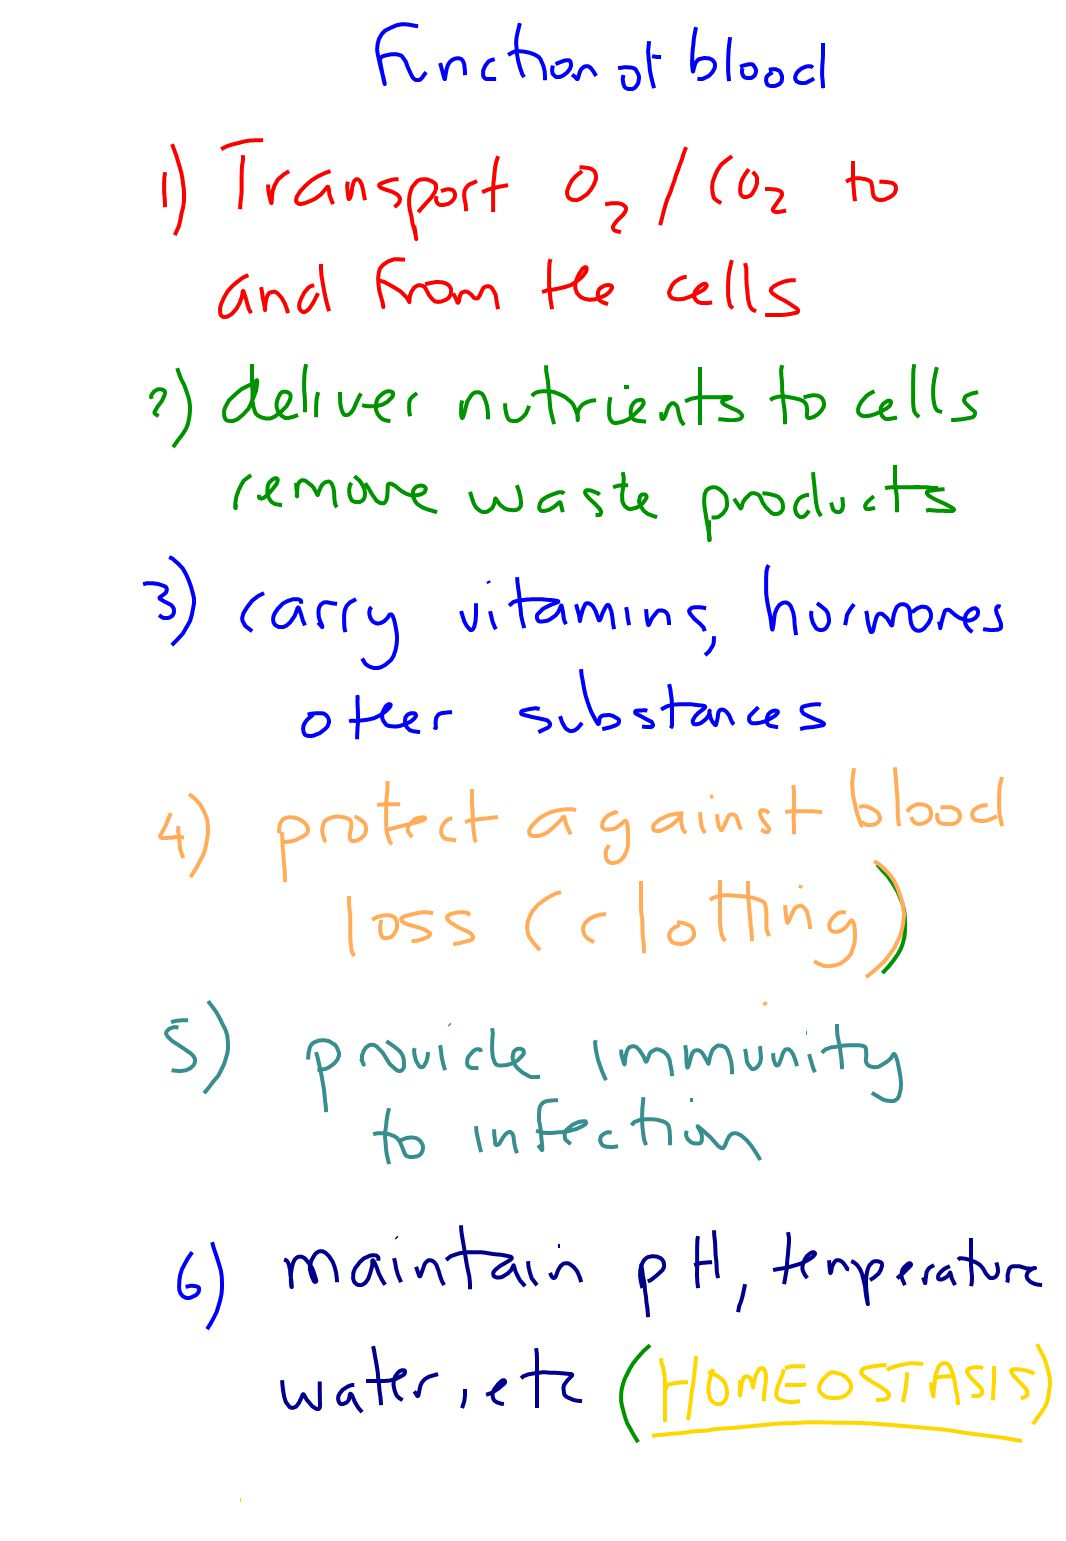 Function of blood
1) Transport O₂ / CO₂ to
and from the cells
2) deliver nutrients to cells
remove waste products
3) carry vitamins, hormones
other substances
4) protect against blood
loss (clotting)
5) provide immunity
to infection
6) maintain pH, temperature
water, etc (HOMEOSTASIS)